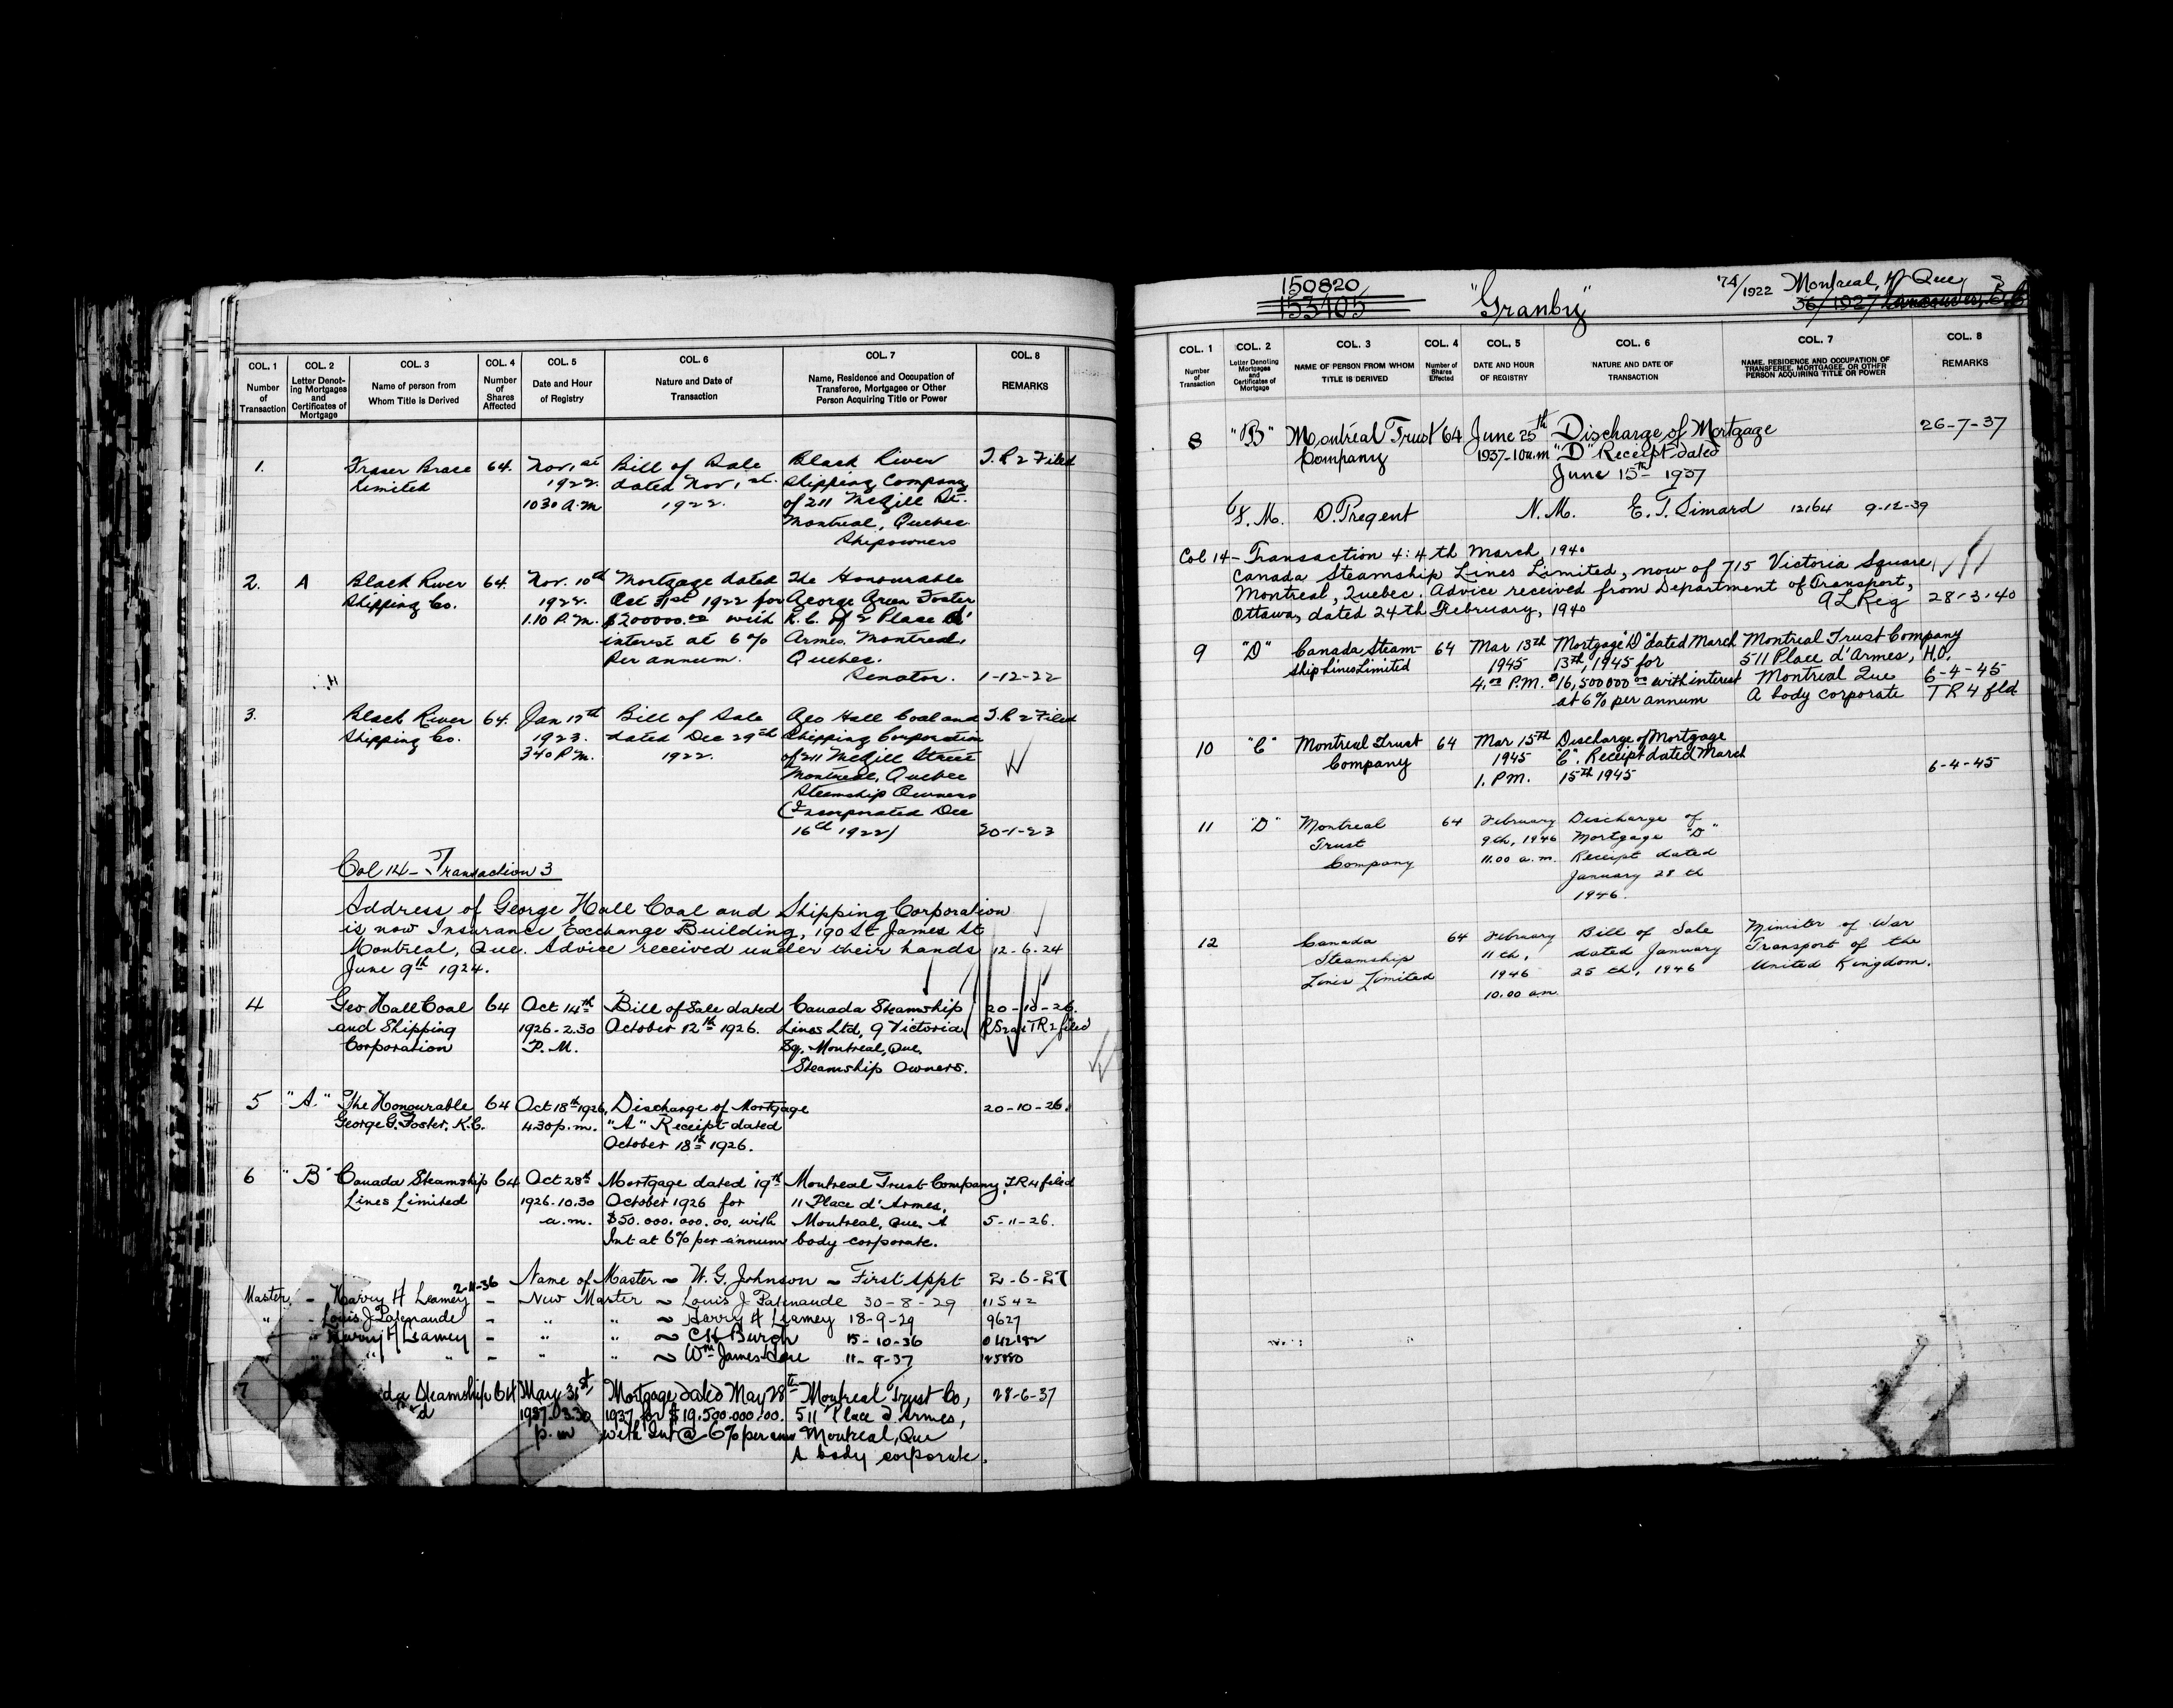 COL. 1 COL. 2 COL. 3 COL. 4 COL. 5 COL. 6 COL. 7 COL. 8
Number of Transaction
Letter Denoting Mortgages and Certificates of Mortgage
Name of person from Whom Title is Derived
Number of Shares Affected
Date and Hour of Registry
Nature and Date of Transaction
Name, Residence and Occupation of Transferee, Mortgagee or Other Person Acquiring Title or Power
REMARKS
1. Fraser Brace 64. Nov. 1st Bill of Sale Black River T.R 2 Filed
Limited 1922. dated Nov, 1st. Shipping Company
1030 A.M 1922. of 211 McGill St.
Montreal, Quebec
Shipowners
2. A Black River 64. Nov. 10th Mortgage dated The Honourable
Shipping Co. 1922. Oct 31st 1922 for George Green Foster
1.10 P.M. $200000.00 with K.C. of 2 Place d'
interest at 6% Armes. Montreal,
Per annum. Quebec.
Senator. 1-12-22
3. Black River 64. Jan 17th Bill of Sale Geo Hall Coal and T.R 2 Filed
Shipping Co. 1923. dated Dec 29th Shipping Corporation
340 P.M. 1922. of 211 McGill Street
Montreal, Quebec
Steamship Owners
(Incorporated Dec
16th 1922) 20-1-23
Col 14 - Transaction 3
Address of George Hall Coal and Shipping Corporation
is now Insurance Exchange Building, 190 St James St
Montreal, Que. Advice received under their hands 12-6-24
June 9th 1924.
4 Geo Hall Coal 64 Oct 14th Bill of Sale dated Canada Steamship 20-10-26.
and Shipping 1926-2.30 October 12th 1926. Lines Ltd, 9 Victoria TR2 filed
Corporation P.M. Sq. Montreal, Que.
Steamship Owners.
5 "A." The Honourable 64 Oct 18th 1926, Discharge of Mortgage 20-10-26.
George G. Foster, K.C. 4.30 p.m. "A" Receipt dated
October 18th 1926.
6 "B" Canada Steamship 64 Oct 28th Mortgage dated 19th Montreal Trust Company, TR4 filed
Lines Limited 1926.10.30 October 1926 for 11 Place d'Armes,
a.m. $50.000.000.00. with Montreal, Que. A 5-11-26.
Int at 6% per annum body corporate.
Name of Master ~ W. G. Johnson ~ First Appt 2-6-27
2-11-36
Master, - Harry H Leamey - New Master ~ Louis J Patenaude 30-8-29 11542
" - Louis J Patenaude - " " ~ Harry H Leamey 18-9-29 9627
" Harry H Leamey - " " ~ C H Burgh 15-10-36
" " - " " ~ Wm James 11-9-37
7 Steamship 64 May 31st, Mortgage dated May 28th Montreal Trust Co, 28-6-37
1937-03.30 1937 for $19.500.000.00. 511 Place d'Armes,
p.m with Int @ 6% per ann Montreal, Que
A body corporate.
150820
153405
"Granby"
74/1922 Montreal, Que
36/1927
COL. 1 COL. 2 COL. 3 COL. 4 COL. 5 COL. 6 COL. 7 COL. 8
Number of Transaction
Letter Denoting Mortgages and Certificates of Mortgage
NAME OF PERSON FROM WHOM TITLE IS DERIVED
Number of Shares Effected
DATE AND HOUR OF REGISTRY
NATURE AND DATE OF TRANSACTION
NAME, RESIDENCE AND OCCUPATION OF TRANSFEREE, MORTGAGEE, OR OTHER PERSON ACQUIRING TITLE OR POWER
REMARKS
8 "B" Montreal Trust 64 June 25th Discharge of Mortgage 26-7-37
Company 1937-10a.m "D" Receipt dated
June 15th 1937
F. M. D. Pregent N. M. E. T. Simard 12164 9-12-39
Col 14 - Transaction 4: 4th March, 1940
Canada Steamship Lines Limited, now of 715 Victoria Square,
Montreal, Quebec. Advice received from Department of Transport,
Ottawa, dated 24th February, 1940 Reg 28-3-40
9 "D" Canada Steam- 64 Mar 13th Mortgage "D" dated March Montreal Trust Company
ship Lines Limited 1945 13th, 1945 for 511 Place d'Armes, H.O.
4.00 P.M. $16,500000 00 with interest Montreal Que 6-4-45
at 6% per annum A body corporate TR4 fld
10 "C" Montreal Trust 64 Mar 15th Discharge of Mortgage
Company 1945 "C". Receipt dated March
1. P.M. 15th 1945 6-4-45
11 "D" Montreal 64 February Discharge of
Trust 9th, 1946 Mortgage "D"
Company 11.00 a.m. Receipt dated
January 28th
1946.
12 Canada 64 February Bill of Sale Minister of War
Steamship 11th, dated January Transport of the
Lines Limited 1946 25th, 1946 United Kingdom.
10.00 am